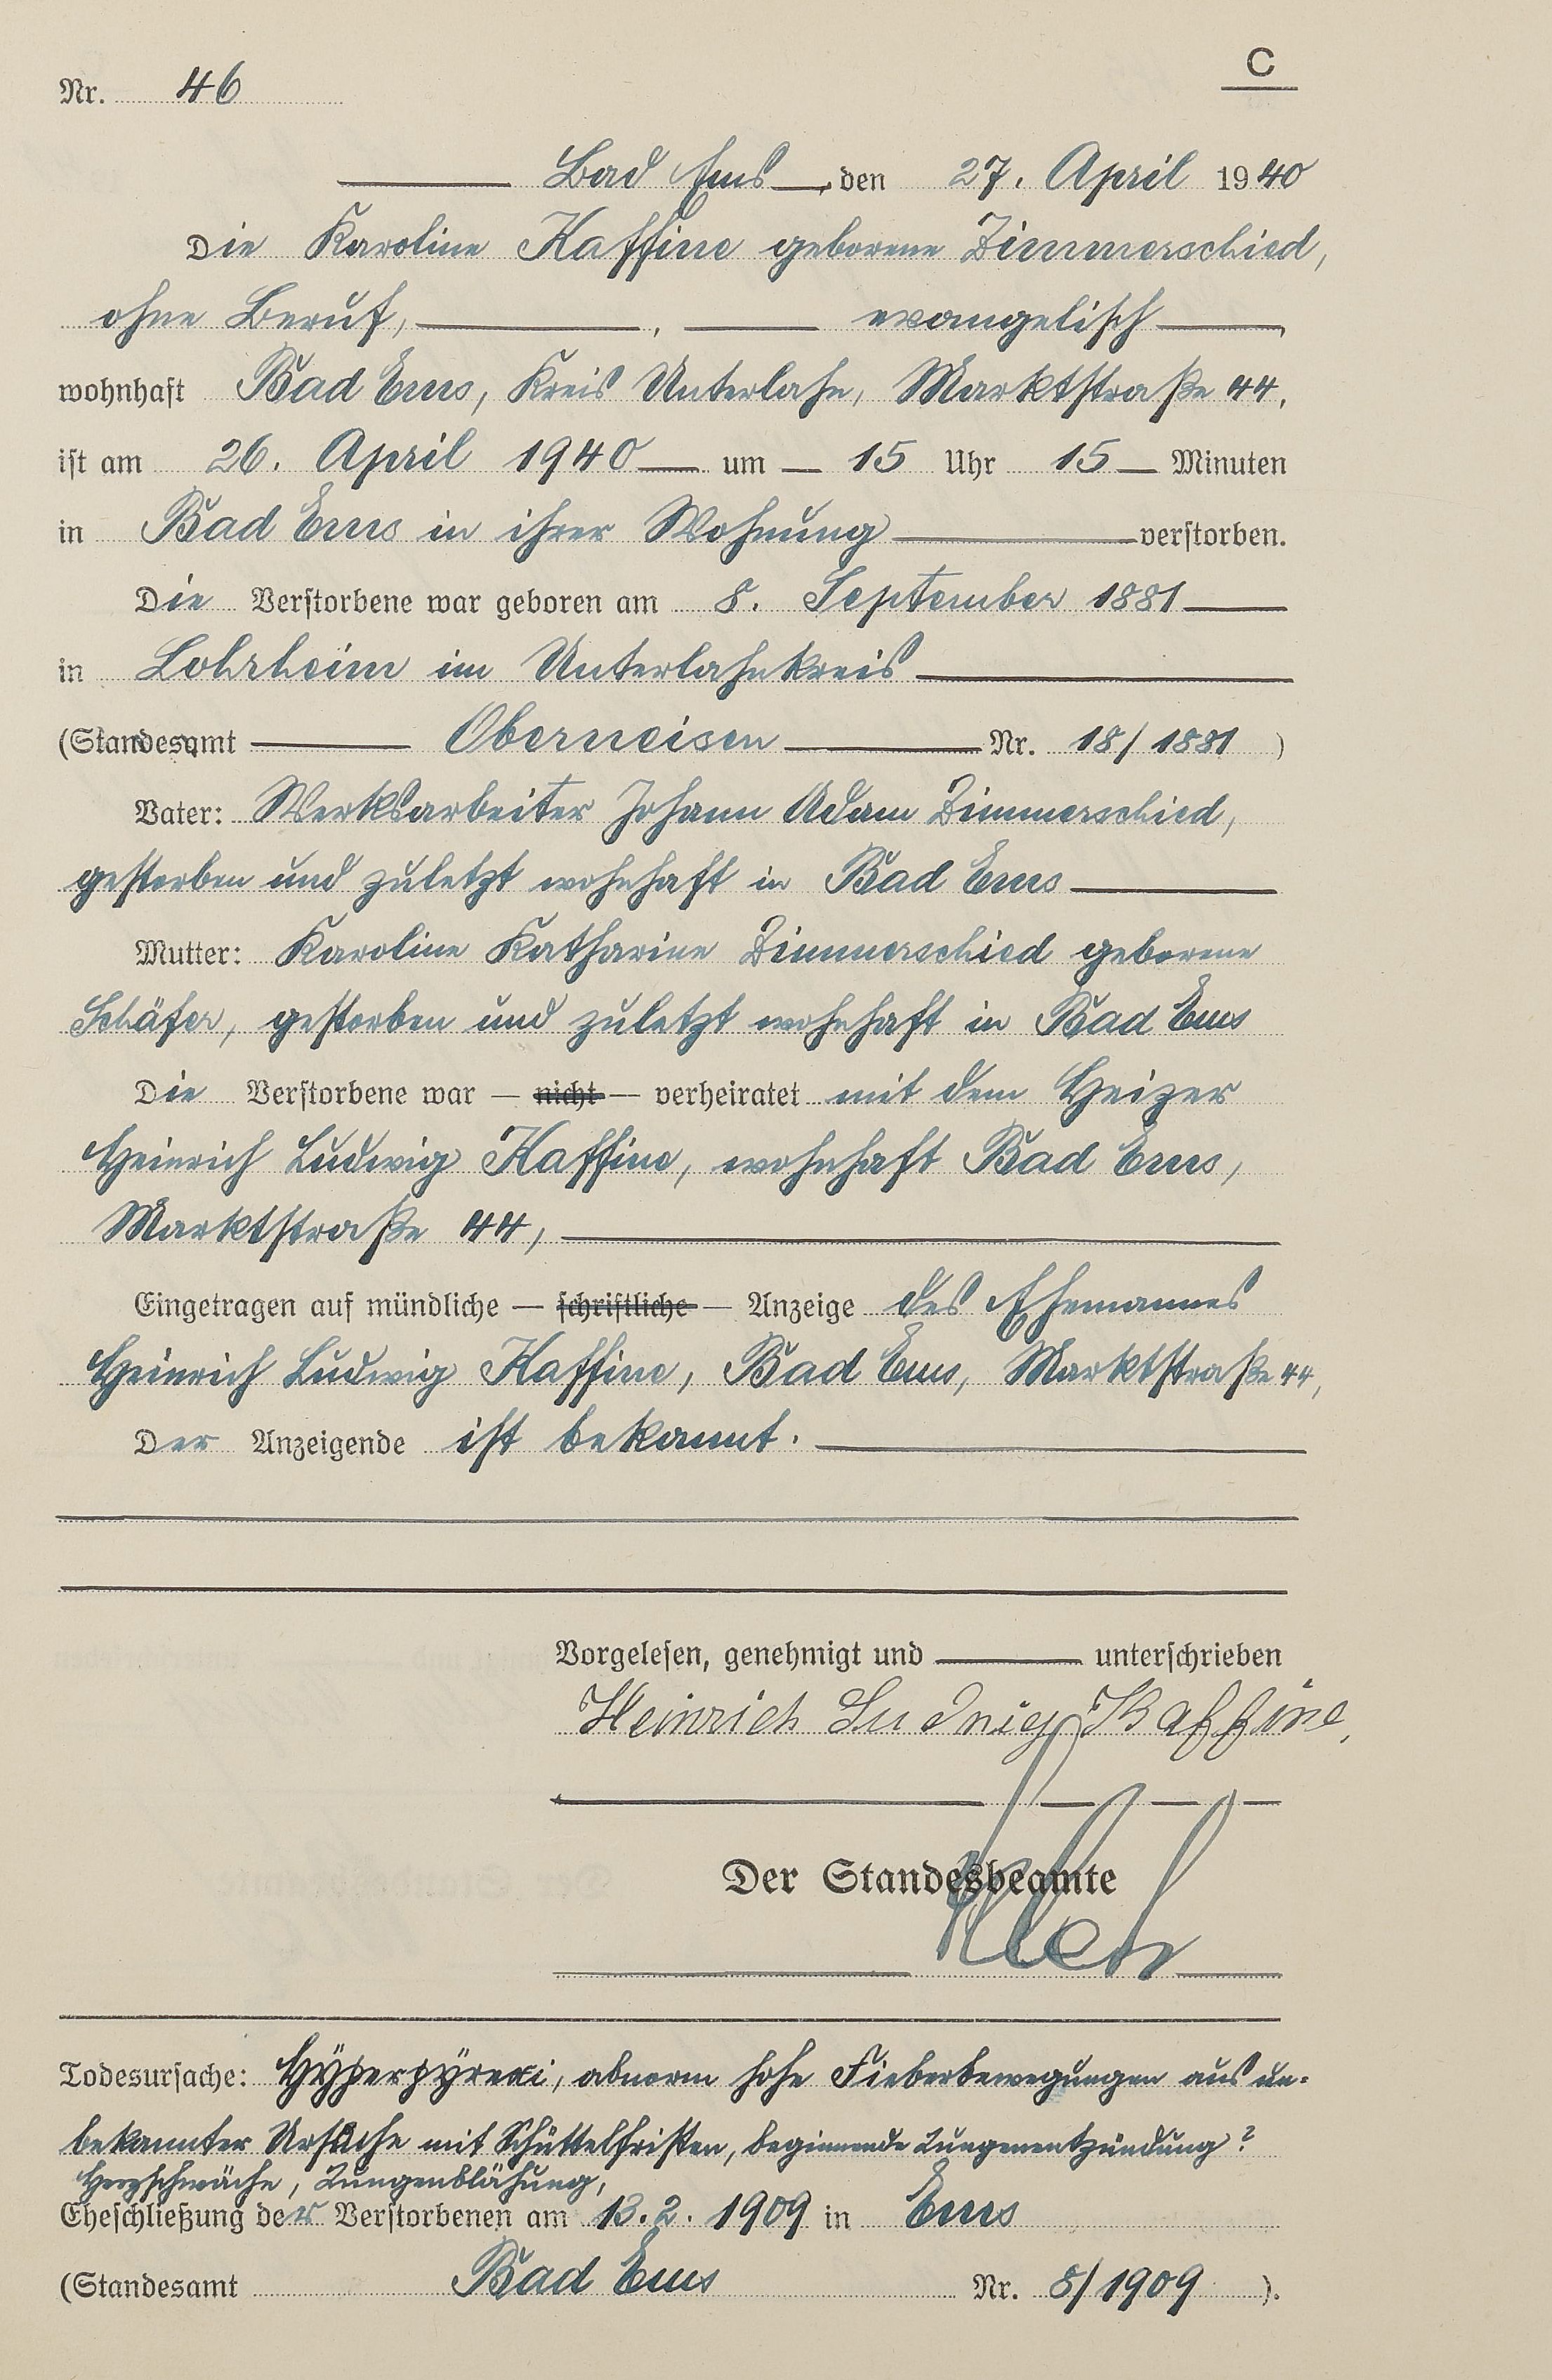 C
Nr. 46
Bad Ems, den 27. April 1940
Die Karoline Kaffine geborene Zimmerschied,
ohne Beruf, , evangelisch,
wohnhaft Bad Ems, Kreis Unterlahn, Marktstraße 44,
ist am 26. April 1940 um 15 Uhr 15 Minuten
in Bad Ems in ihrer Wohnung verstorben.
Die Verstorbene war geboren am 8. September 1881
in Lohrheim im Unterlahnkreis
(Standesamt Oberneisen Nr. 18/1881 )
Vater: Werksarbeiter Johann Adam Zimmerschied,
gestorben und zuletzt wohnhaft in Bad Ems
Mutter: Karoline Katharine Zimmerschied geborene
Schäfer, gestorben und zuletzt wohnhaft in Bad Ems
Die Verstorbene war — nicht — verheiratet mit dem Heizer
Heinrich Ludwig Kaffine, wohnhaft Bad Ems,
Marktstraße 44,
Eingetragen auf mündliche — schriftliche — Anzeige des Ehemannes
Heinrich Ludwig Kaffine, Bad Ems, Marktstraße 44,
Der Anzeigende ist bekannt.
Vorgelesen, genehmigt und unterschrieben
Heinrich Ludwig Kaffine,
Der Standesbeamte
Todesursache: Hyperpyrexi, abnorm hohe Fieberbewegungen aus un-
bekannter Ursache mit Schüttelfrösten, beginnende Lungenentzündung?
Herzschwäche, Lungenblähung,
Eheschließung der Verstorbenen am 13.2.1909 in Ems
(Standesamt Bad Ems Nr. 8/1909 ).